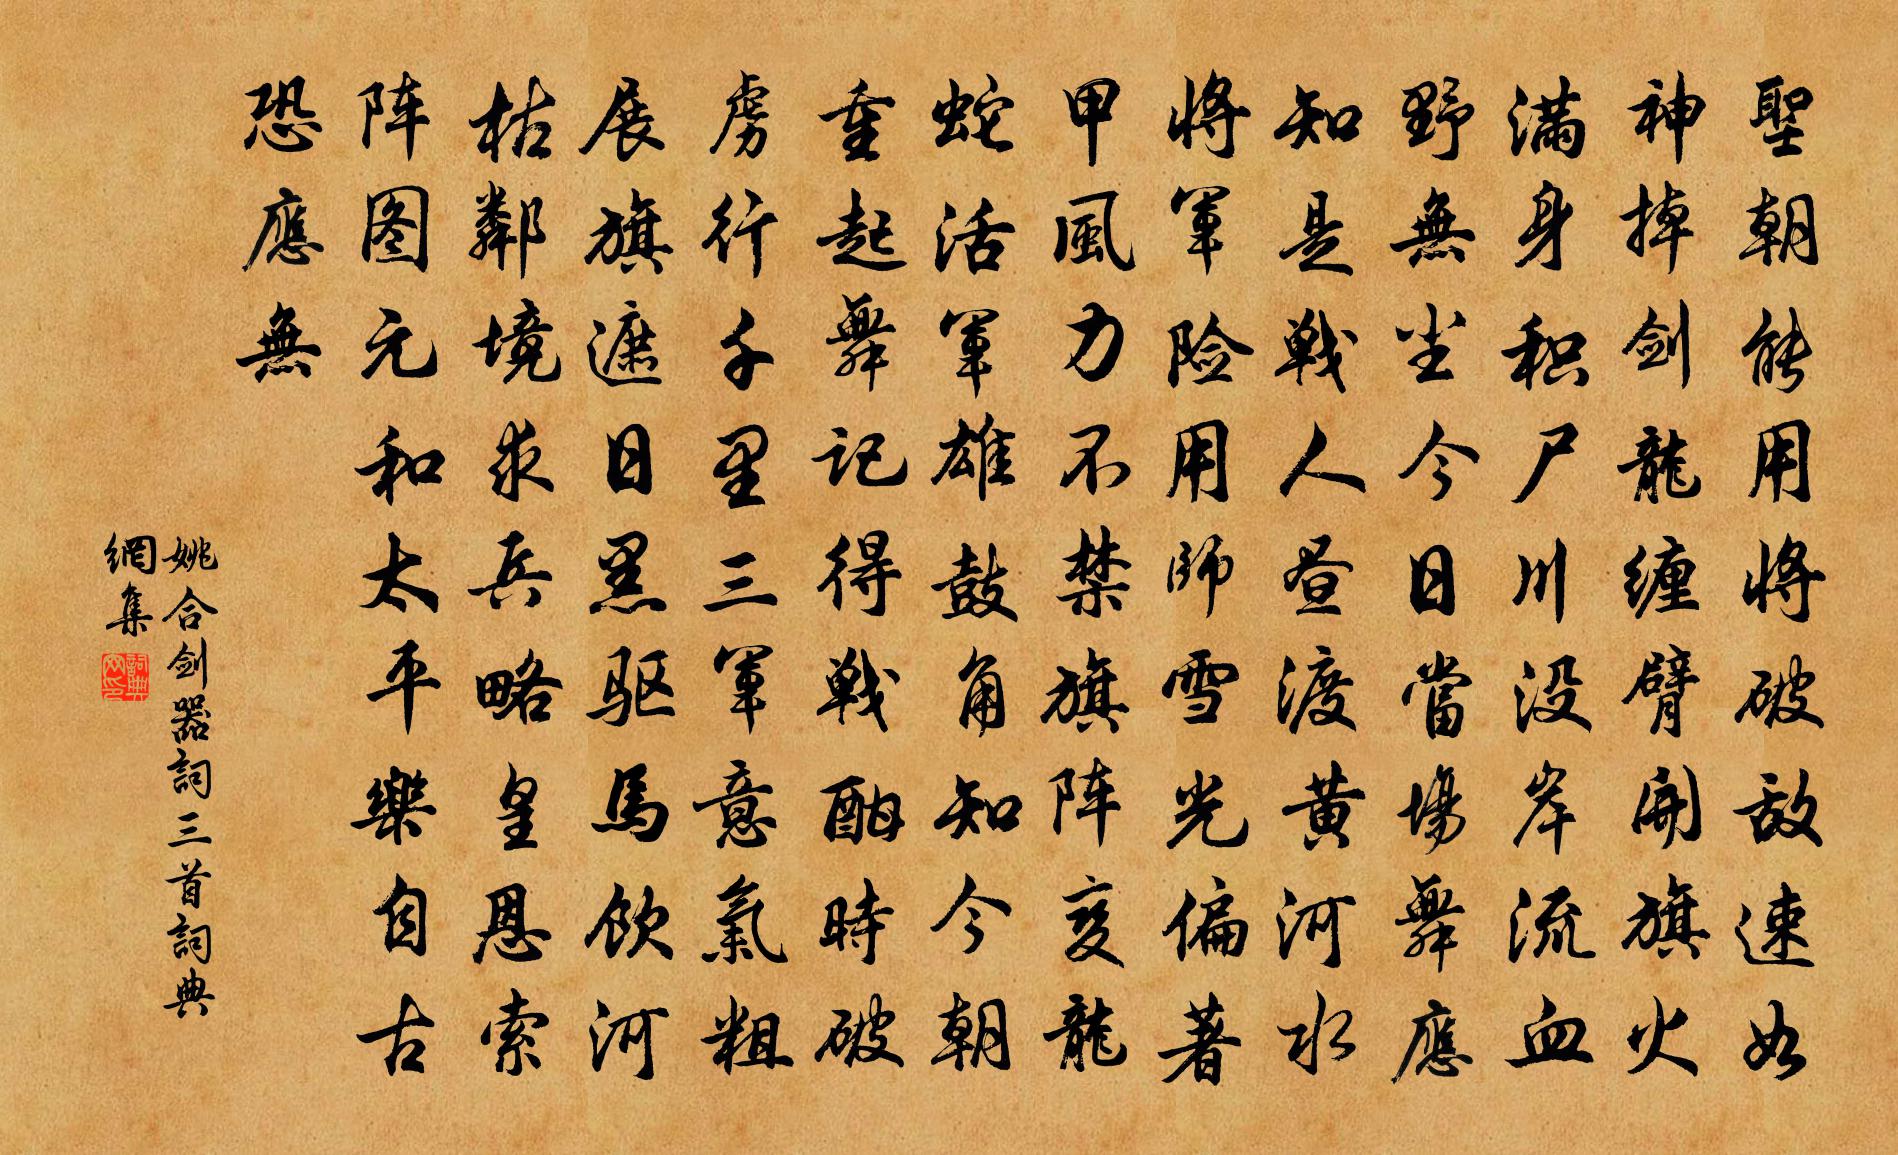 聖朝能用将破敌速如
神掉剑龍缠臂開旗火
满身积尸川没岸流血
野無尘今日當場舞應
知是戦人昼渡黄河水
将軍险用師雪光偏著
甲風力不禁旗阵变龍
蛇活軍雄鼓角知今朝
重起舞记得戦酣時破
虏行千里三軍意氣粗
展旗遮日黑驱馬飲河
枯鄰境求兵略皇恩索
阵图元和太平樂自古
恐應無
姚合剑器詞三首詞典
網集